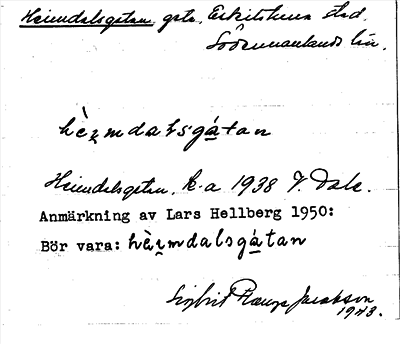 Heimdalsgatan, gata, Eskilstuna stad.
Södermanlands län.
hèi̯mdalsgá̱tan
Heimdalsgatan, k-a 1938 I. Dale.
Anmärkning av Lars Hellberg 1950:
Bör vara: hèi̯mdalsgá̱tan
Sigbrit Jacobson
1943.